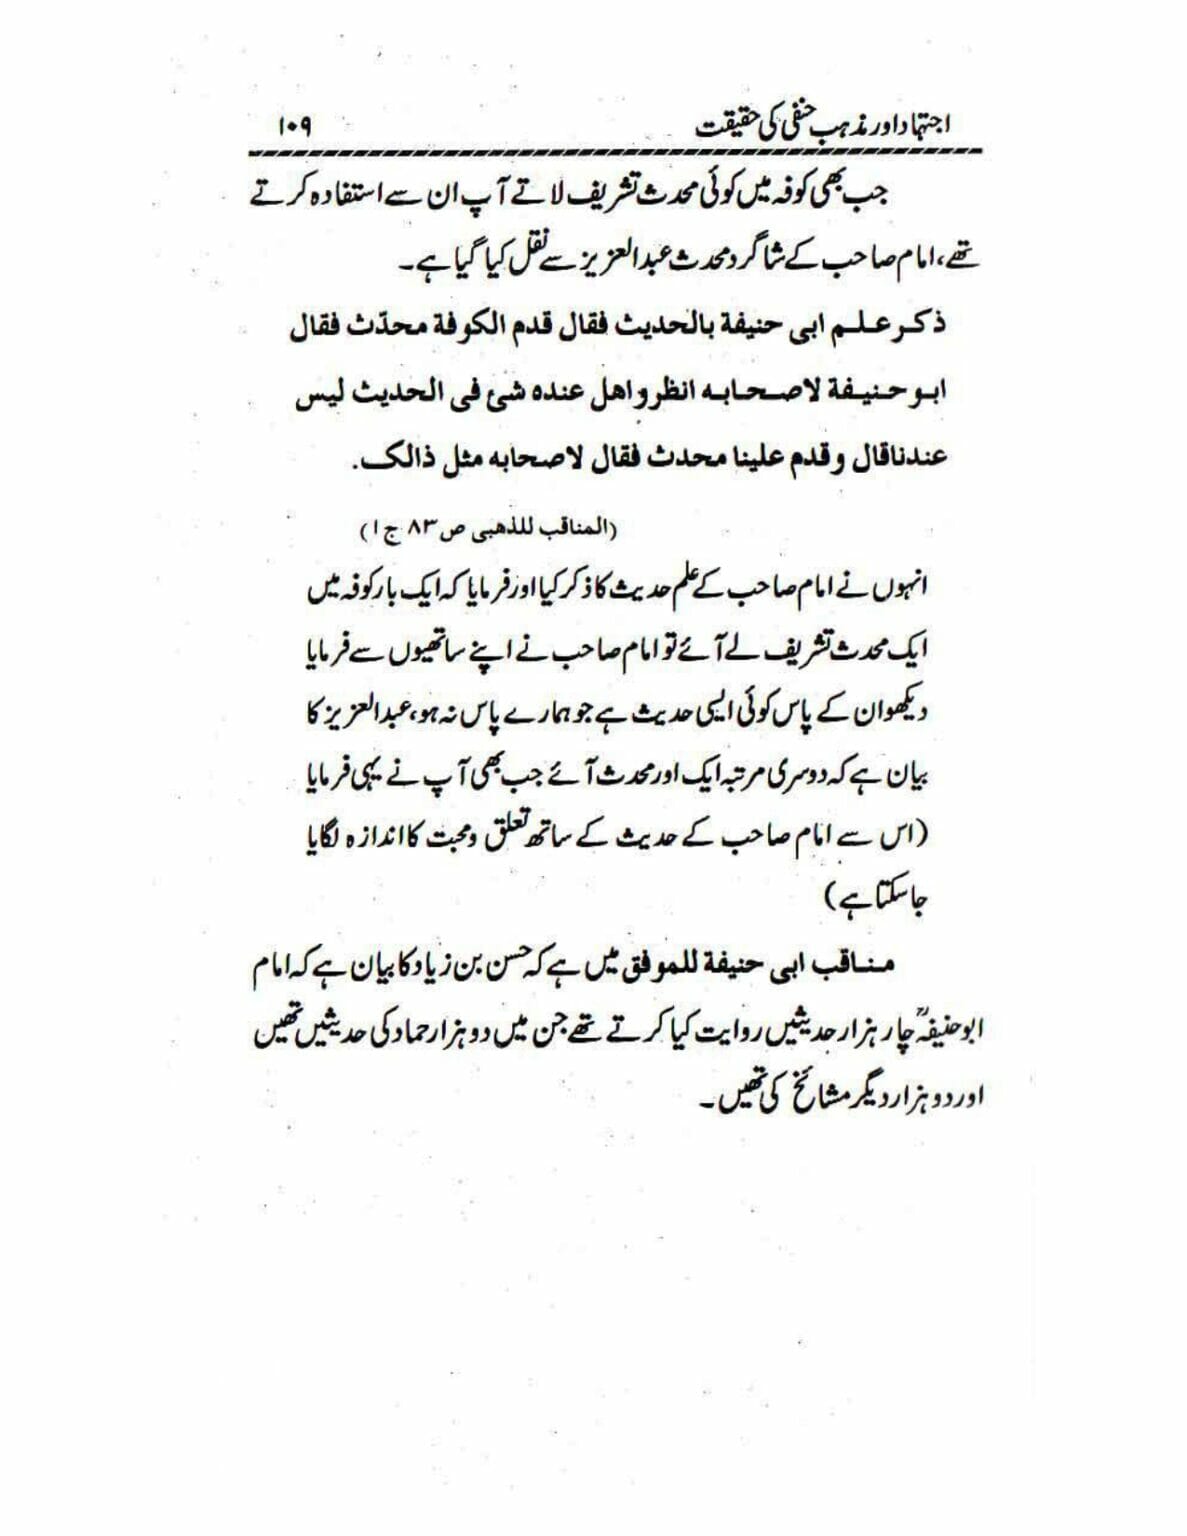 اجتہاد اور مذہب حنفی کی حقیقت ۱۰۹
جب بھی کوفہ میں کوئی محدث تشریف لاتے آپ ان سے استفادہ کرتے
تھے، امام صاحب کے شاگرد محدث عبدالعزیز سے نقل کیا گیا ہے۔
ذکر علم ابی حنیفة بالحدیث فقال قدم الکوفة محدّث فقال
ابو حنیفة لاصحابه انظرو اهل عنده شئ فی الحدیث لیس
عندنا قال و قدم علینا محدث فقال لاصحابه مثل ذالک.
(المناقب للذهبی ص ۸۳ ج ا)
انہوں نے امام صاحب کے علم حدیث کا ذکر کیا اور فرمایا کہ ایک بار کوفہ میں
ایک محدث تشریف لے آئے تو امام صاحب نے اپنے ساتھیوں سے فرمایا
دیکھو ان کے پاس کوئی ایسی حدیث ہے جو ہمارے پاس نہ ہو، عبدالعزیز کا
بیان ہے کہ دوسری مرتبہ ایک اور محدث آئے جب بھی آپ نے یہی فرمایا
(اس سے امام صاحب کے حدیث کے ساتھ تعلق و محبت کا اندازہ لگایا
جا سکتا ہے)
مناقب ابی حنیفة للموفق میں ہے کہ حسن بن زیاد کا بیان ہے کہ امام
ابو حنیفہؒ چار ہزار حدیثیں روایت کیا کرتے تھے جن میں دو ہزار حماد کی حدیثیں تھیں
اور دو ہزار دیگر مشائخ کی تھیں۔